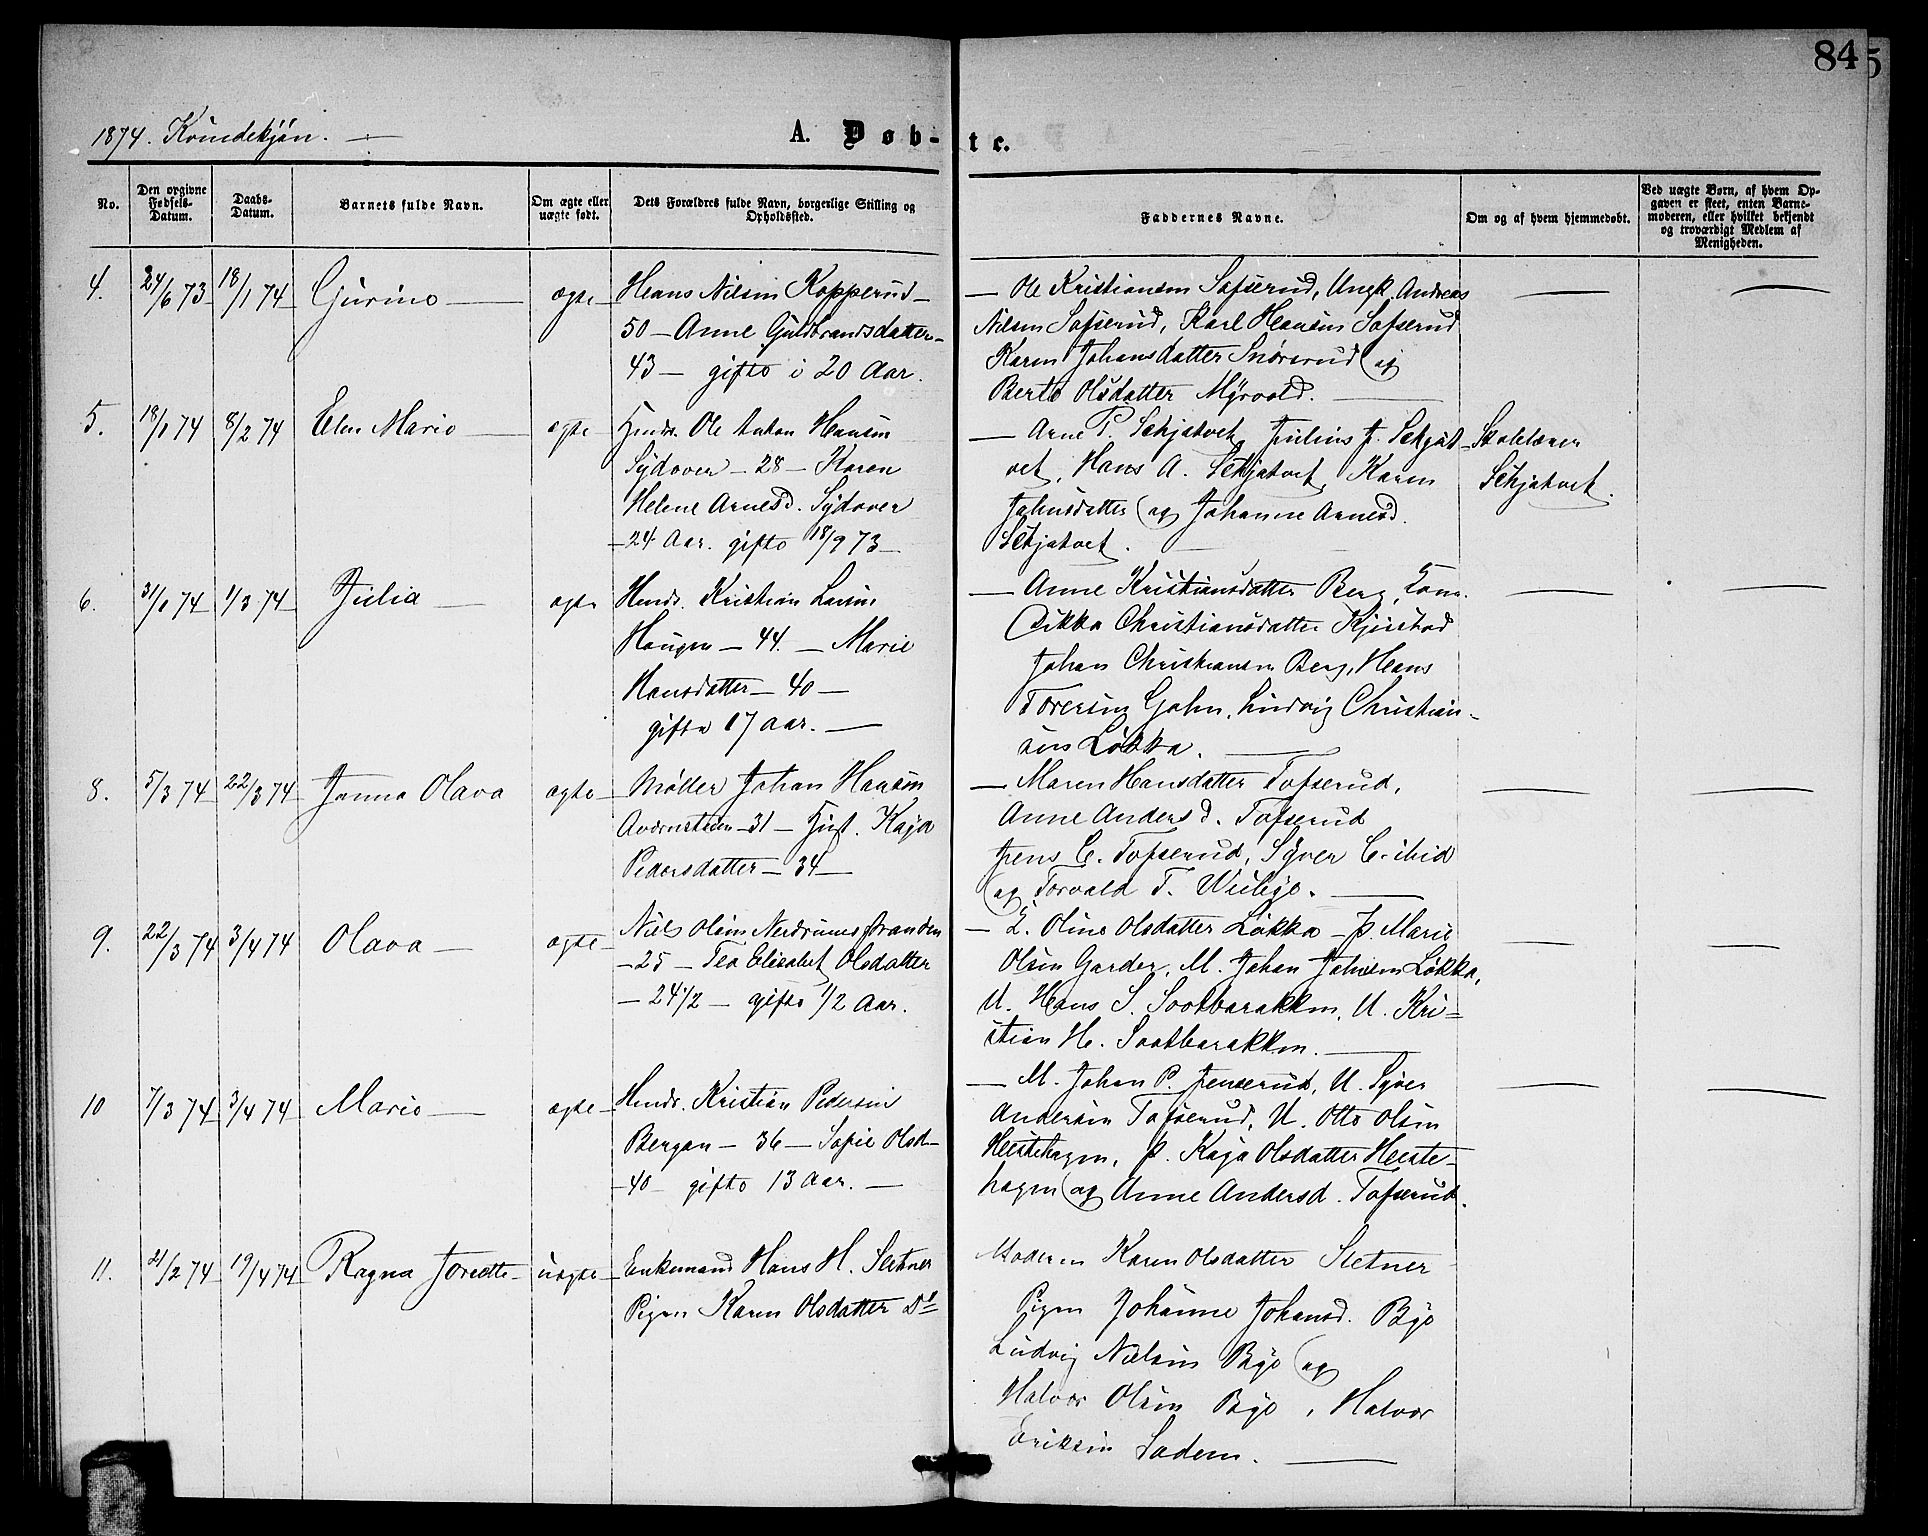 84
5
1874. Kvindekjøn.
A. Døb-te.
No.
Den opgivne Fødsels-Datum.
Daabs-Datum.
Barnets fulde Navn.
Om ægte eller uægte født.
Dets Forældres fulde Navn, borgerlige Stilling og Opholdssted.
Faddernes Navne.
Om og af hvem hjemmedøbt.
Ved uægte Børn, af hvem Opgaven er skeet, enten Barnemoderen, eller hvilket bekjendt og troværdigt Medlem af Menigheden.
4. 24/6 73 18/1 74 Gurine — ægte
Hans Nilsen Kopperud —
50 — Anne Guldbrandsdatter —
43 — gifte i 20 Aar.
— Ole Kristiansen Tofserud, Ungk. Andreas
Nilsen Tofserud, Karl Hansen Tofserud
Karen Johansdatter Snørerud og
Berte Olsdatter Myrvold.
5. 18/1 74 8/2 74 Elen Marie — ægte
Husm. Ole Anton Hansen
Sydover — 28 — Karen
Helene Arnesd. Sydover
— 24 Aar. gifte 18/9 73 —
— Arne P. Sekjatvet, Julius J. Sekjat-
vet, Hans A. Sekjatvet, Karen
Johnsdatter og Johanne Arnesd.
Sekjatvet.
Skolelærer
Sekjatvet.
6. 31/1 74 1/3 74 Julia — ægte
Husm. Kristian Larsen
Haugen — 44. — Marie
Hansdatter — 40 —
gifte 17 Aar. —
— Anne Kristiansdatter Berg,
Rikka Christiansdatter
Johan Christiansen Berg, Hans
Toresen Golen, Ludvig Christian-
sen Løkka.
8. 5/3 74 22/3 74 Janna Olava ægte
Møller Johan Hansen
— 31 — Hust. Kaja
Pedersdatter — 34 —
— Maren Hansdatter Tofserud,
Anne Andersd. Tofserud
Jens C. Tofserud, Syver
og Torvald T.
9. 22/3 74 3/4 74 Olava — ægte
Niels Olsen Nerdrumsstranden
— 25 — Tea Elisabet Olsdatter
— 24 1/2 — gifte 1/2 Aar.
— E. Oline Olsdatter Løkka — P. Marie
Olsen Garder, M. Johan Johnsen Løkka,
U. Hans S. Sootbarakken, U. Kri-
stian H. Sootbarakken.
10 7/3 74 3/4 74 Marie — ægte
Husm. Kristian Pedersen
Bergan — 36 — Sofie Olsd —
— 40 — gifte 13 Aar. —
— M. Johan P. Jenserud, U. Syver
Andersen Tofserud, U. Otto Olsen
Hestehagen, P. Kaja Olsdatter Heste-
hagen og Anne Andersd. Tofserud.
11. 21/2 74 19/4 74 Ragna Josette — uægte
Enkemand Hans H. Stetner
Pigen Karen Olsdatter Do
Moderen Karen Olsdatter Stetner
Pigen Johanne Johansd. Bye
Ludvig Nielsen Bye og
Halvor Olsen Bye, Halvor
Eriksen Sodem.